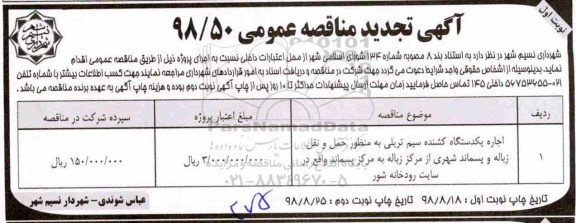 نوبت اول
آگهی تجدید مناقصه عمومی ۹۸/۵۰
شهرداری نسیم شهر در نظر دارد به استناد بند ۸ مصوبه شماره ۱۳۴ شورای اسلامی شهر از محل اعتبارات داخلی نسبت به اجرای پروژه ذیل از طریق مناقصه عمومی اقدام
نماید. بدینوسیله از اشخاص حقوقی واجد شرایط دعوت می گردد جهت شرکت در مناقصه و دریافت اسناد به امور قراردادهای شهرداری مراجعه نمایند جهت کسب اطلاعات بیشتر با شماره تلفن
۰۲۱-۵۶۷۵۳۶۵۵ داخلی ۱۴۵ تماس حاصل فرمایید زمان مهلت ارسال پیشنهادات حداکثر تا ۱۰ روز پس از چاپ آگهی نوبت دوم بوده و هزینه چاپ آگهی به عهده برنده مناقصه می باشد.
ردیف موضوع مناقصه مبلغ اعتبار پروژه سپرده شرکت در مناقصه
۱ اجاره یکدستگاه کشنده سیم تریلی به منظور حمل و نقل زباله و پسماند شهری از مرکز زباله به مرکز پسماند واقع در سایت رودخانه شور ۳/۰۰۰/۰۰۰/۰۰۰ ریال ۱۵۰/۰۰۰/۰۰۰ ریال
تاریخ چاپ نوبت اول : ۹۸/۸/۱۸ تاریخ چاپ نوبت دوم : ۹۸/۸/۲۵
عباس شوندی - شهردار نسیم شهر
ParsNamadData
۰۲۱-۸۸۳۴۹۶۷۰-۵